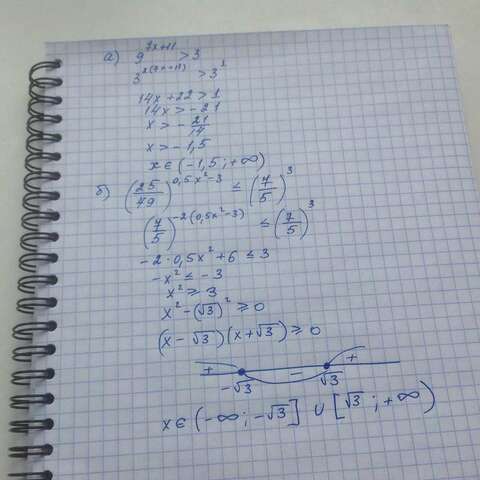 а) 9^(7x+11) > 3
3^(2(7x+11)) > 3^1
14x + 22 > 1
14x > -21
x > -21/14
x > -1,5
x ∈ (-1,5 ; +∞)
б) (25/49)^(0,5x²-3) ≤ (7/5)^3
(7/5)^(-2(0,5x²-3)) ≤ (7/5)^3
-2·0,5x² + 6 ≤ 3
-x² ≤ -3
x² ≥ 3
x² - (√3)² ≥ 0
(x - √3)(x + √3) ≥ 0
+ − +
-√3 √3
x ∈ (-∞ ; -√3] ∪ [√3 ; +∞)